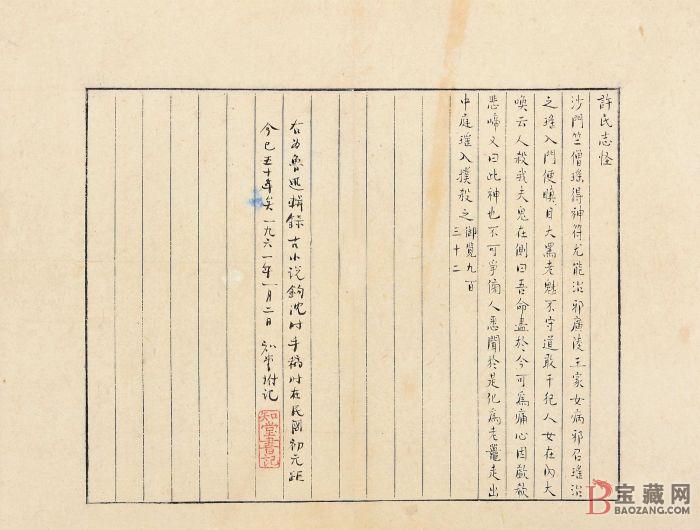 許氏志怪
沙門竺僧瑤得神符尤能治邪廣陵王家女病邪召瑤治
之瑤入門便瞋目大罵老魅不守道敢干犯人女在內大
喚云人殺我夫鬼在側曰吾命盡於今可為痛心因歔欷
悲啼又曰此神也不可爭傍人悉聞於是化為老鼉走出
中庭瑤入撲殺之御覽九百
三十二
右為魯迅輯錄古小说鉤沈时手稿时在民國初元距
今已五十年矣一九六一年一月二日 知堂附记
知堂書記
宝藏网
BAOZANG.COM